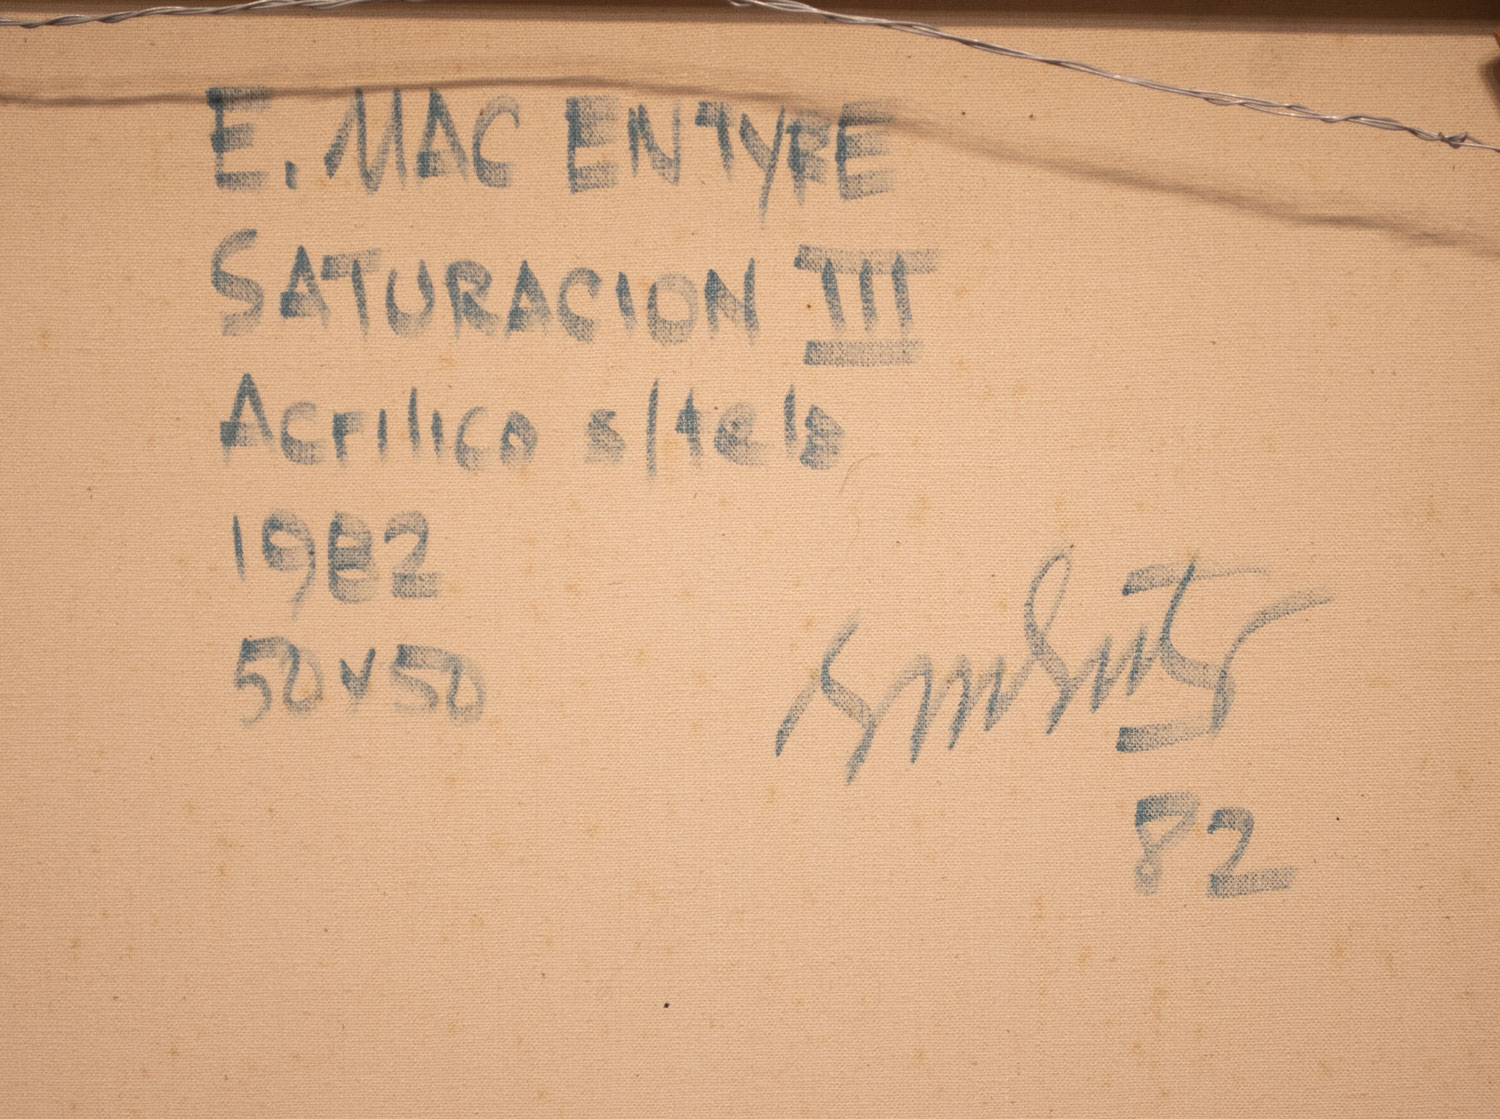 E. MAC ENTYRE
SATURACION III
Acrilico s/tela
1982
50 x 50
82